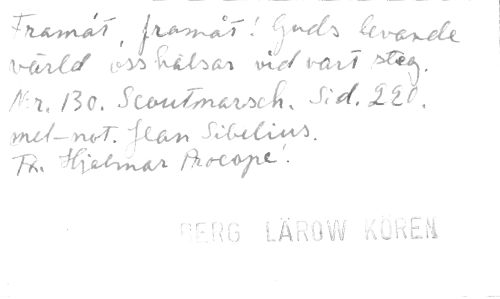 Framåt, framåt! Guds levande
värld oss hälsar vid vart steg.
Nr. 130. Scoutmarsch. Sid. 220.
mel-not. Jean Sibelius.
Tx. Hjalmar Procopé.
BERG LÄROW KÖREN